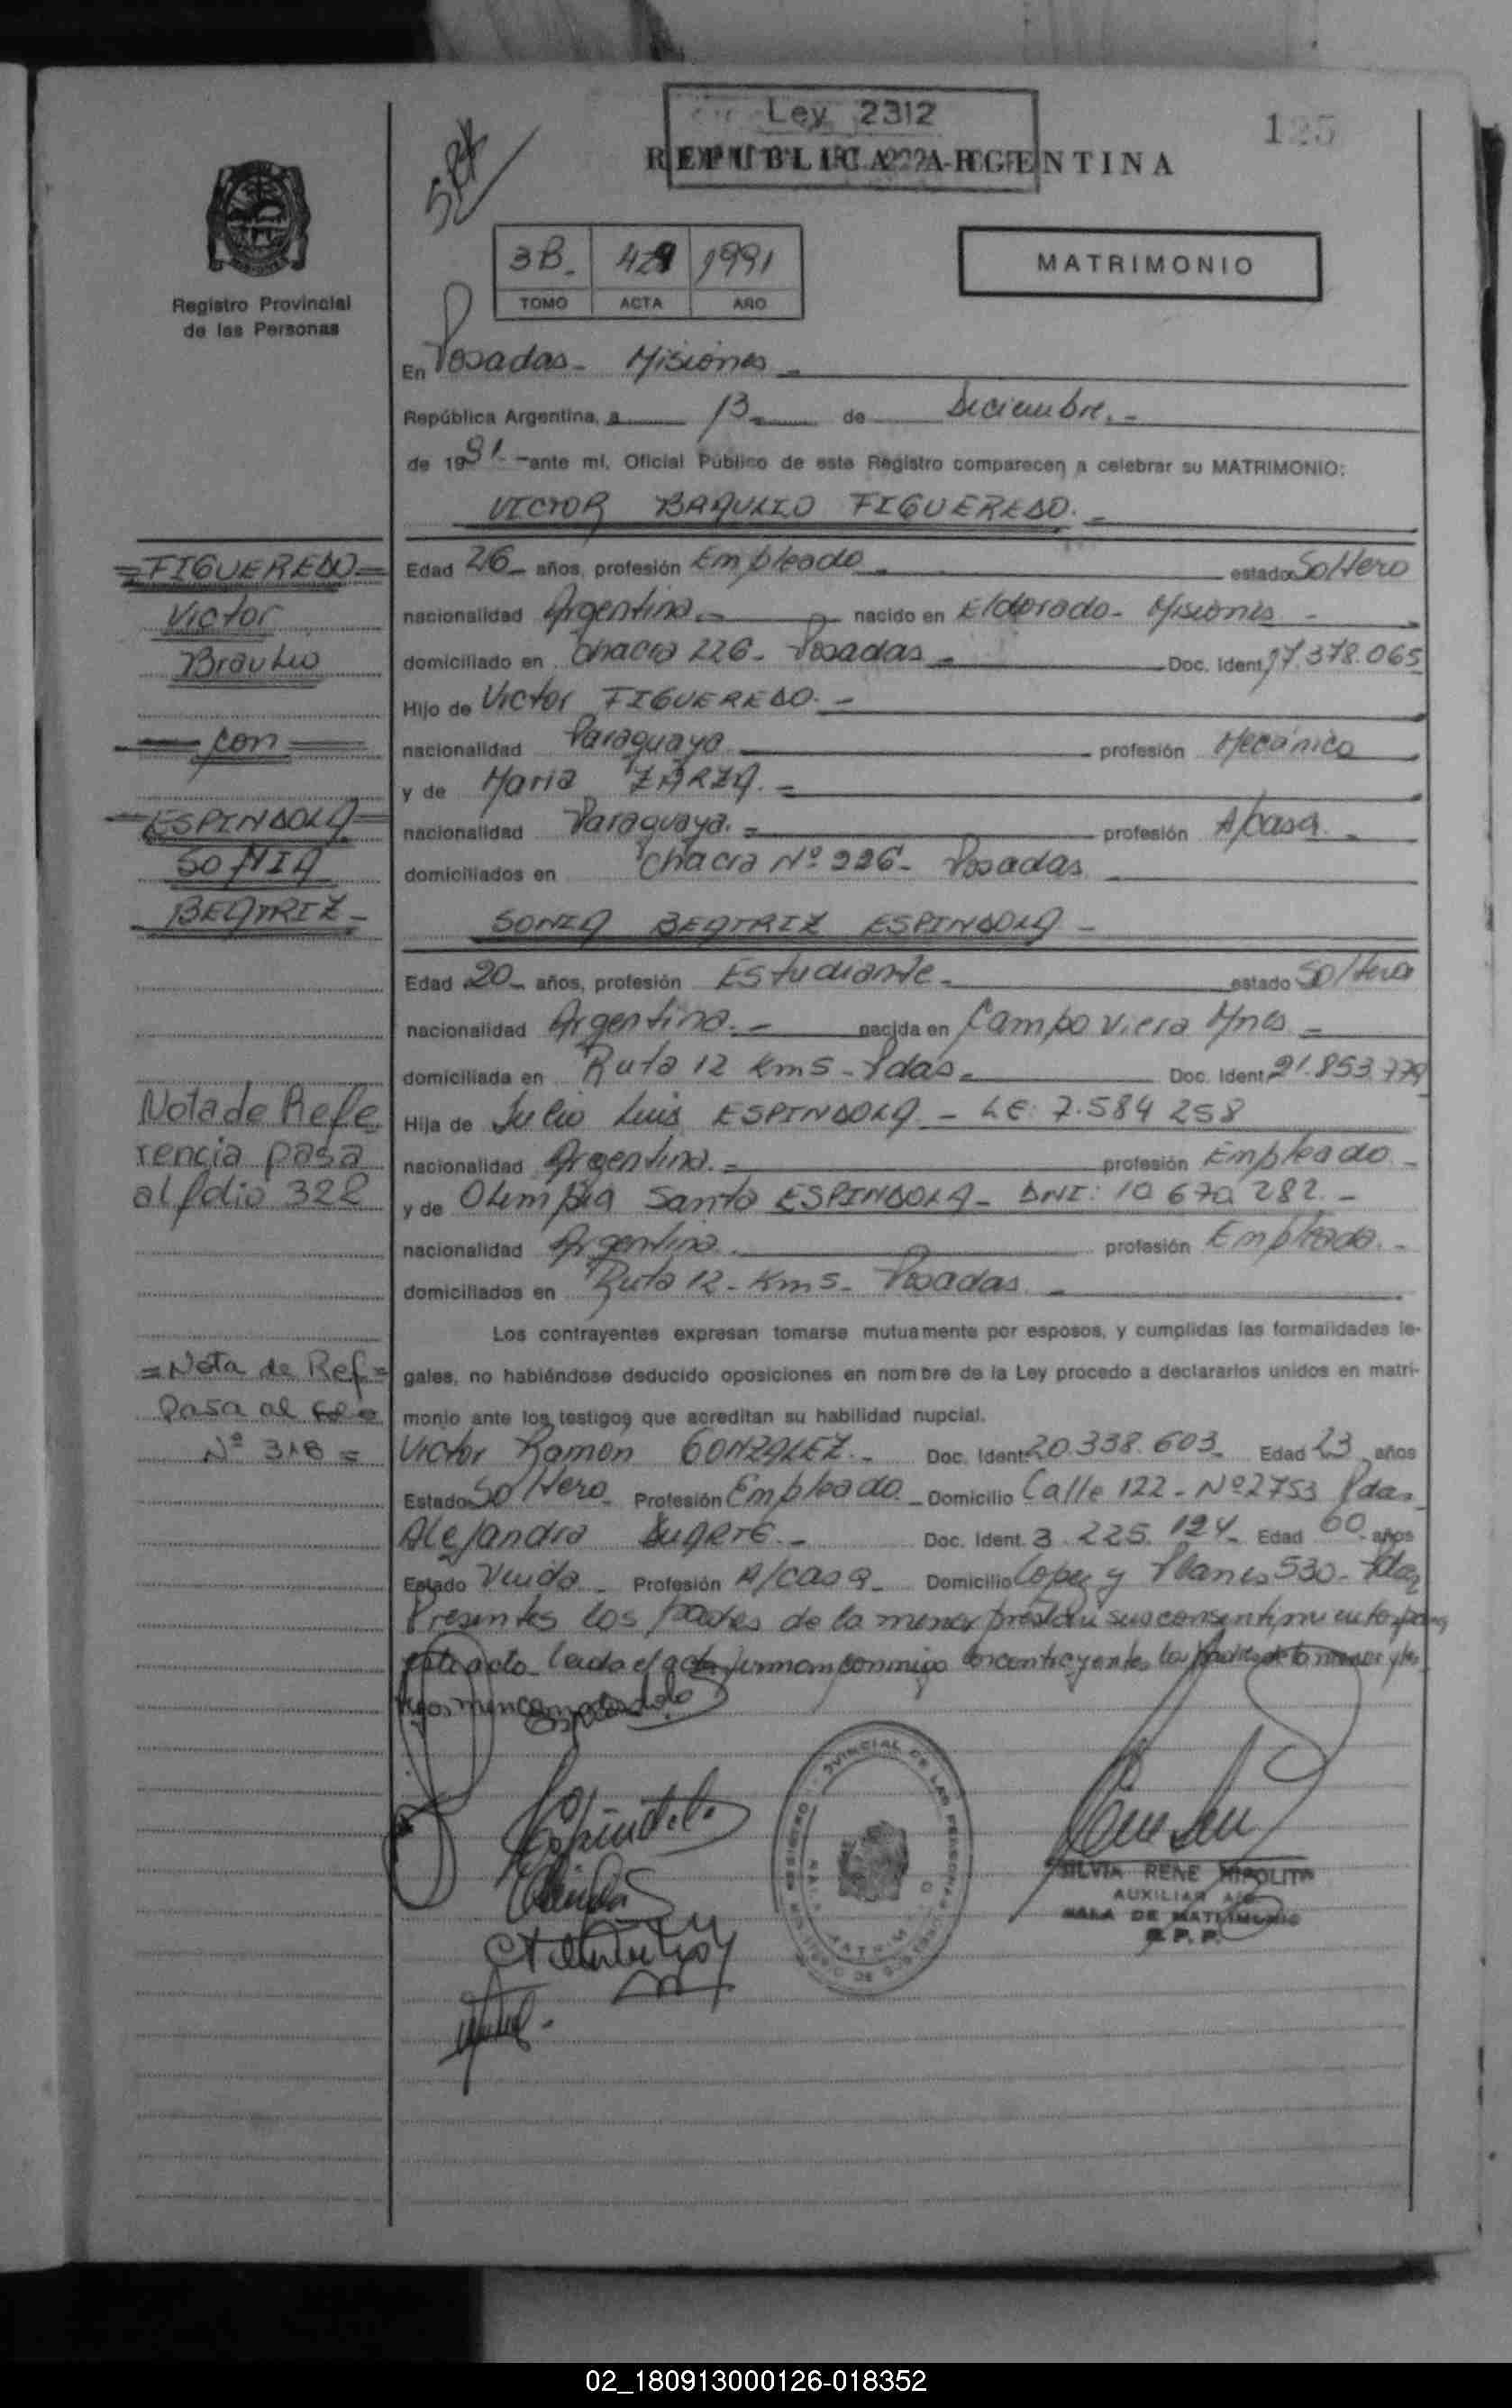 Ley 2312
125
REPUBLICA ARGENTINA
3B. 429 1991
TOMO ACTA AÑO
MATRIMONIO
Registro Provincial
de las Personas
En Posadas - Misiones
República Argentina, a 13 de Diciembre.-
de 1991 -ante mí, Oficial Público de este Registro comparecen a celebrar su MATRIMONIO:
VICTOR BRAULIO FIGUEREDO.-
=FIGUEREDO=
Victor
Braulio
= con =
=ESPINDOLA=
SONIA
BEATRIZ-
Edad 26 años, profesión Empleado estado Soltero
nacionalidad Argentina.- nacido en Eldorado- Misiones -
domiciliado en Chacra 226- Posadas - Doc. Ident. 17.378.065
Hijo de Victor FIGUEREDO.-
nacionalidad Paraguaya profesión Mecánico
y de Maria ZARZA.-
nacionalidad Paraguaya.- profesión A/casa. -
domiciliados en Chacra Nº 226- Posadas
SONIA BEATRIZ ESPINDOLA -
Edad 20 años, profesión Estudiante- estado Soltera
nacionalidad Argentina.- nacida en Campo Viera Mnes -
domiciliada en Ruta 12 Km 5 - Pdas- Doc. Ident. 21.853.779
Hija de Julio Luis ESPINDOLA - LE: 7.584 258
nacionalidad Argentina.- profesión Empleado -
y de Olimpia Santa ESPINDOLA- DNI: 10 670 282. -
nacionalidad Argentina. profesión Empleada. -
domiciliados en Ruta 12 - Km 5 - Posadas. -
Nota de Refe
rencia pasa
al folio 322
= Nota de Ref =
Pasa al
Nº 318 =
Los contrayentes expresan tomarse mutuamente por esposos, y cumplidas las formalidades le-
gales, no habiéndose deducido oposiciones en nombre de la Ley procedo a declararlos unidos en matri-
monio ante los testigos que acreditan su habilidad nupcial.
Victor Ramon GONZALEZ.- Doc. Ident. 20.338.603 Edad 23 años
Estado Soltero Profesión Empleado. - Domicilio Calle 122 - Nº 2753 Pdas
Alejandra DUARTE.- Doc. Ident. 3.225.124- Edad 60 años
Estado Viuda - Profesión A/casa- Domicilio Lopez y Planes 530- Pdas
Presentes los padres de la menor prestan su consentimiento para
este acto leida el acta firman conmigo los contrayentes los padres de la menor y tes
tigos mencionados
REGISTRO PROVINCIAL DE LAS PERSONAS
SILVIA RENE HIPOLITO
AUXILIAR
SALA DE MATRIMONIO
R. P. P.
02_180913000126-018352